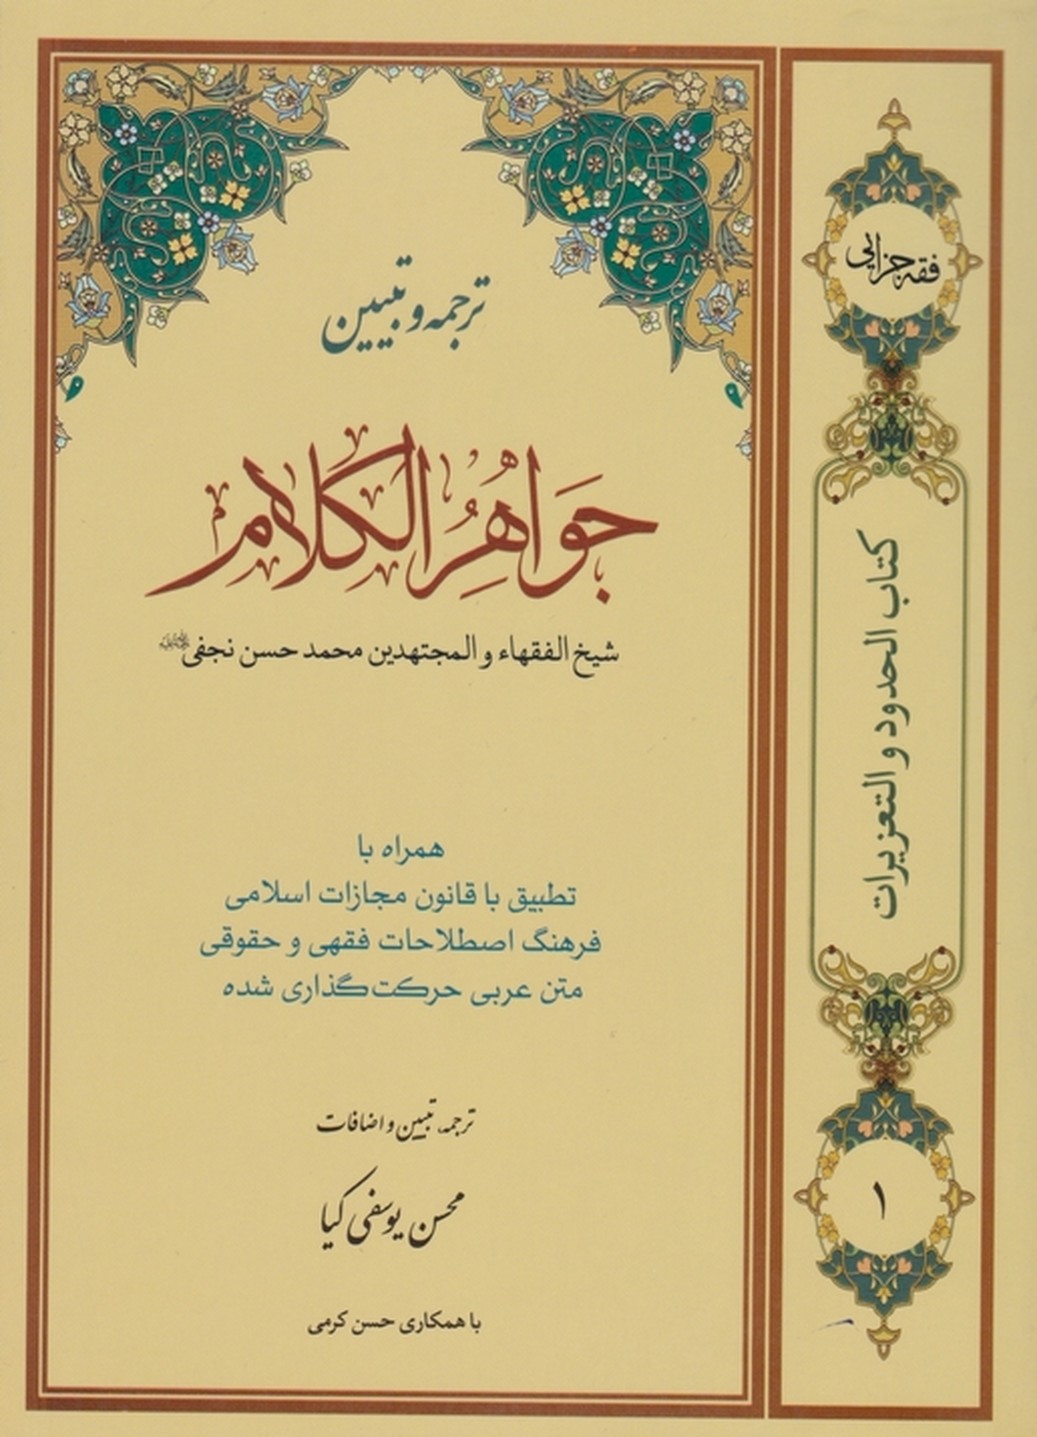 ترجمه و تبیین
جَوَاهِرُ الكَلام
شیخ الفقهاء و المجتهدین محمد حسن نجفی
همراه با
تطبیق با قانون مجازات اسلامی
فرهنگ اصطلاحات فقهی و حقوقی
متن عربی حرکت‌گذاری شده
ترجمه، تبیین و اضافات
محسن یوسفی کیا
با همکاری حسن کرمی
فقه جزایی
کتاب الحدود و التعزیرات
۱